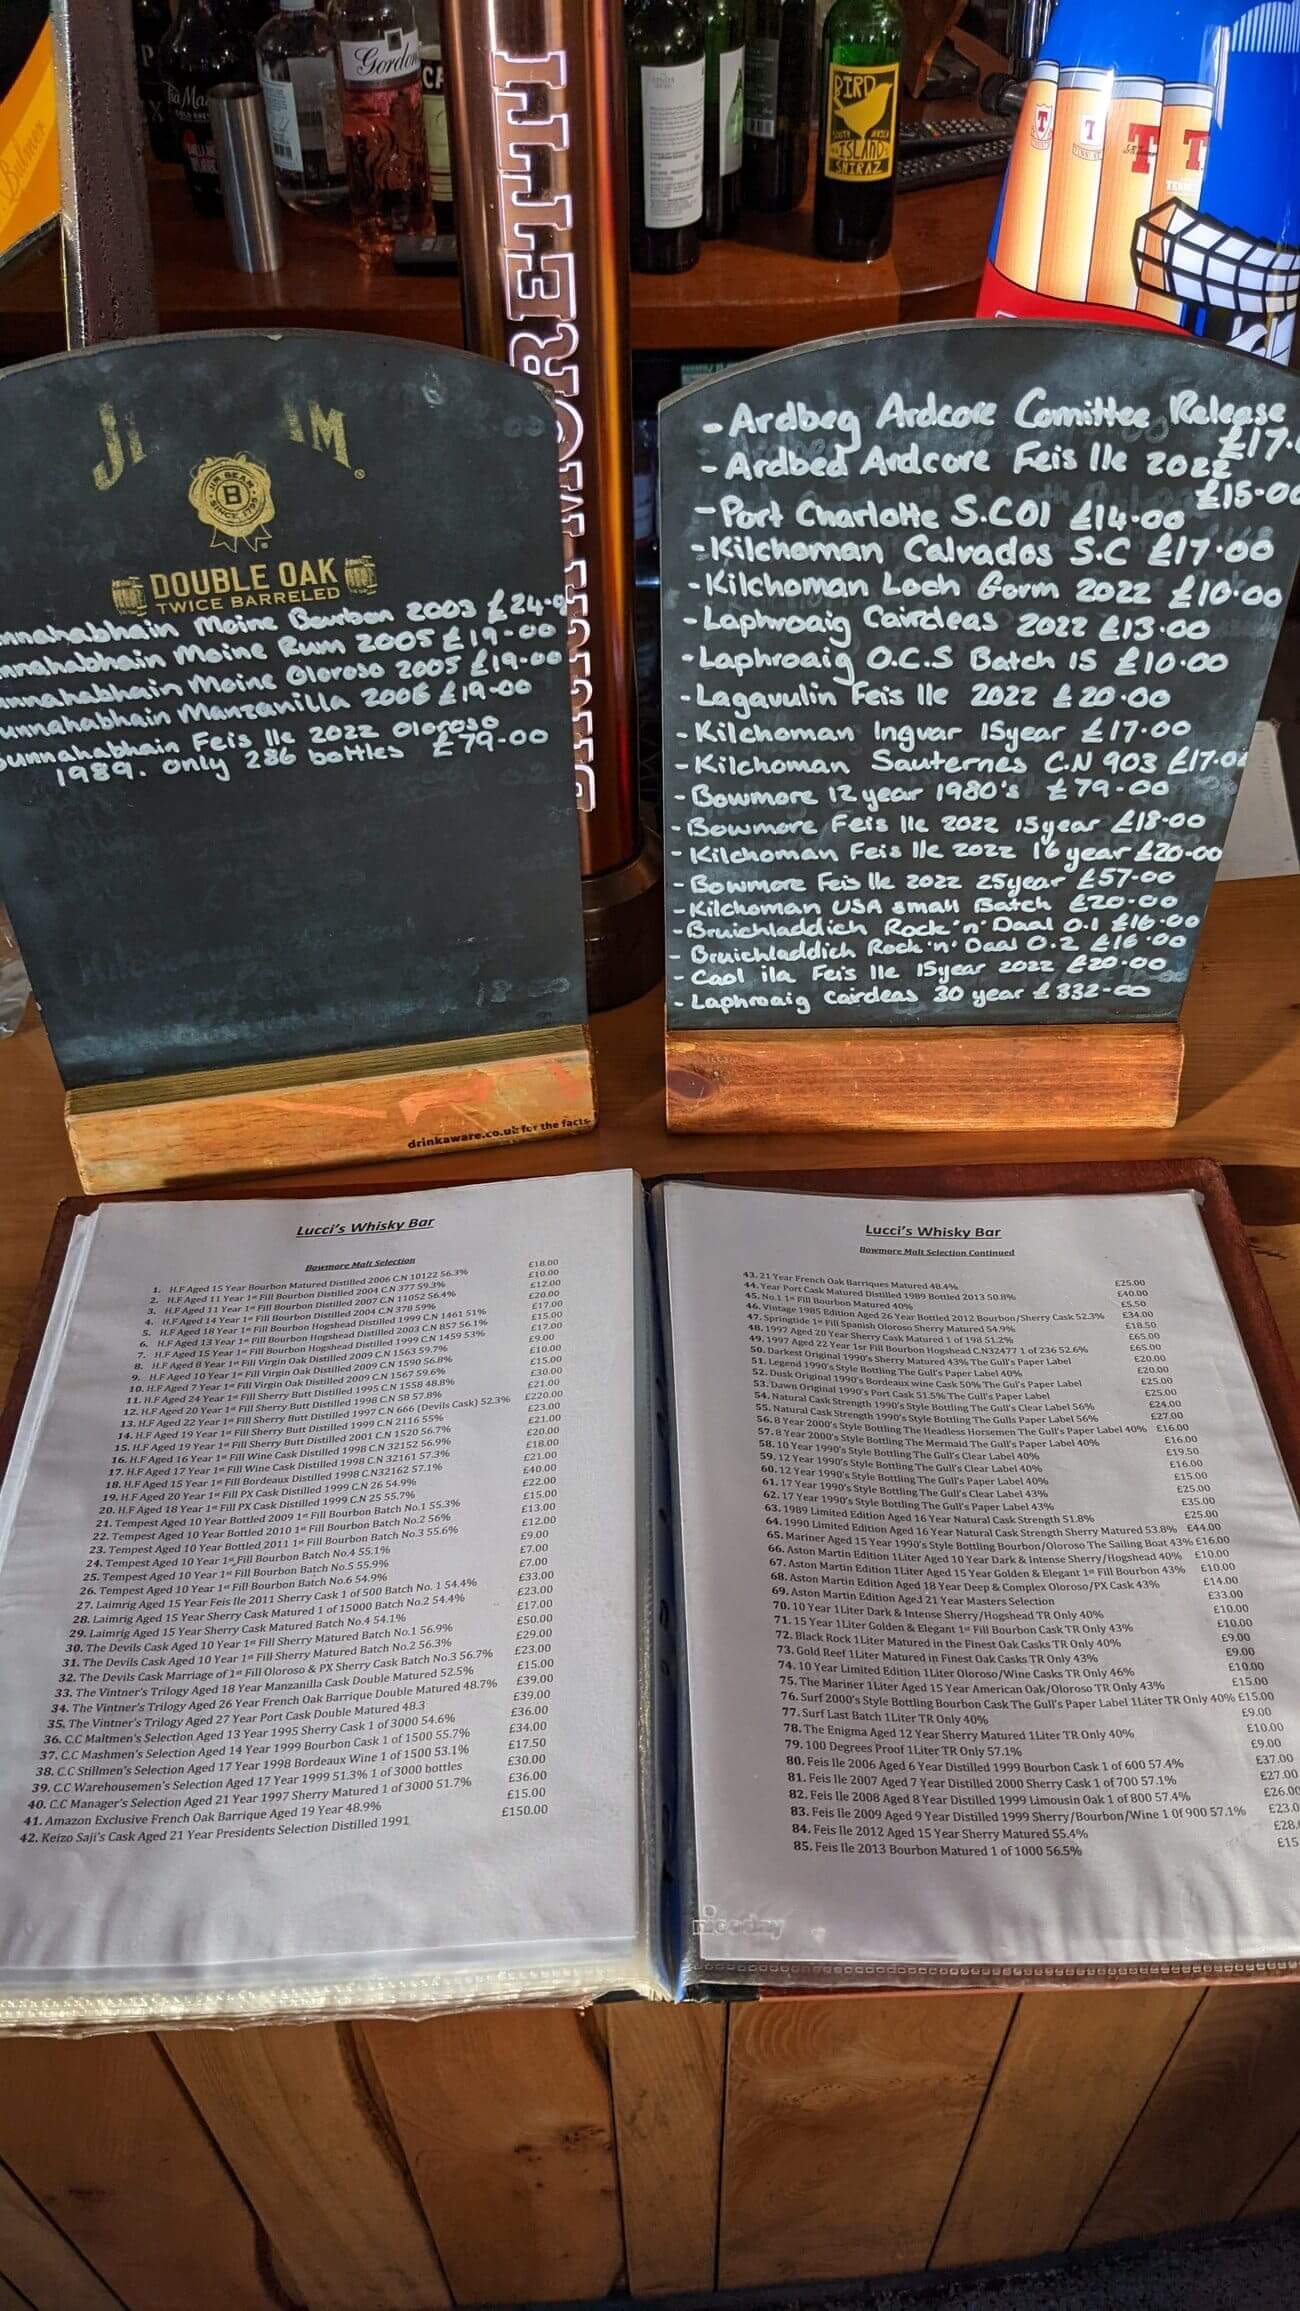 Bulmer
Tia Ma
Gordon
BIRD
ISLAND
SHIRAZ
MORETTI
T
T
T
T
JI IM
JIM BEAM
B
SINCE 1795
DOUBLE OAK
TWICE BARRELED
nnahabhain Moine Bourbon 2003 £24.0
nnahabhain Moine Rum 2005 £19-00
unnahabhain Moine Oloroso 2005 £19-00
unnahabhain Manzanilla 2006 £19-00
Dunnahabhain Feis Ile 2022 Oloroso
1989. only 286 bottles £79-00
drinkaware.co.uk for the facts
- Ardbeg Ardcore Comittee Release
£17.
- Ardbed Ardcore Feis Ile 2022
£15-00
- Port Charlotte S.C01 £14-00
- Kilchoman Calvados S.C £17.00
- Kilchoman Loch Gorm 2022 £10.00
- Laphroaig Cairdeas 2022 £13.00
- Laphroaig O.C.S Batch 15 £10.00
- Lagavulin Feis Ile 2022 £20.00
- Kilchoman Ingvar 15year £17.00
- Kilchoman Sauternes C.N 903 £17.00
- Bowmore 12 year 1980's £79-00
- Bowmore Feis Ile 2022 15year £18.00
- Kilchoman Feis Ile 2022 16 year £20-00
- Bowmore Feis Ile 2022 25year £57-00
- Kilchoman USA small Batch £20-00
- Bruichladdich Rock 'n' Daal 0.1 £16-00
- Bruichladdich Rock 'n' Daal 0.2 £16.00
- Caol ila Feis Ile 15year 2022 £20-00
- Laphroaig Cairdeas 30 year £332-00
Lucci's Whisky Bar
Bowmore Malt Selection
1. H.F Aged 15 Year Bourbon Matured Distilled 2006 C.N 10122 56.3% £18.00
2. H.F Aged 11 Year 1st Fill Bourbon Distilled 2004 C.N 377 59.3% £10.00
3. H.F Aged 11 Year 1st Fill Bourbon Distilled 2007 C.N 11052 56.4% £12.00
4. H.F Aged 14 Year 1st Fill Bourbon Distilled 2004 C.N 378 59% £20.00
5. H.F Aged 18 Year 1st Fill Bourbon Hogshead Distilled 1999 C.N 1461 51% £17.00
6. H.F Aged 13 Year 1st Fill Bourbon Hogshead Distilled 2003 C.N 857 56.1% £15.00
7. H.F Aged 15 Year 1st Fill Bourbon Hogshead Distilled 1999 C.N 1459 53% £17.00
8. H.F Aged 8 Year 1st Fill Virgin Oak Distilled 2009 C.N 1563 59.7% £9.00
9. H.F Aged 10 Year 1st Fill Virgin Oak Distilled 2009 C.N 1590 56.8% £10.00
10. H.F Aged 7 Year 1st Fill Virgin Oak Distilled 2009 C.N 1567 59.6% £15.00
11. H.F Aged 24 Year 1st Fill Sherry Butt Distilled 1995 C.N 1558 48.8% £30.00
12. H.F Aged 20 Year 1st Fill Sherry Butt Distilled 1998 C.N 58 57.8% £21.00
13. H.F Aged 22 Year 1st Fill Sherry Butt Distilled 1997 C.N 666 (Devils Cask) 52.3% £220.00
14. H.F Aged 19 Year 1st Fill Sherry Butt Distilled 1999 C.N 2116 55% £23.00
15. H.F Aged 19 Year 1st Fill Sherry Butt Distilled 2001 C.N 1520 56.7% £21.00
16. H.F Aged 16 Year 1st Fill Wine Cask Distilled 1998 C.N 32152 56.9% £20.00
17. H.F Aged 17 Year 1st Fill Wine Cask Distilled 1998 C.N 32161 57.3% £18.00
18. H.F Aged 15 Year 1st Fill Bordeaux Distilled 1998 C.N32162 57.1% £21.00
19. H.F Aged 20 Year 1st Fill PX Cask Distilled 1999 C.N 26 54.9% £40.00
20. H.F Aged 18 Year 1st Fill PX Cask Distilled 1999 C.N 25 55.7% £22.00
21. Tempest Aged 10 Year Bottled 2009 1st Fill Bourbon Batch No.1 55.3% £15.00
22. Tempest Aged 10 Year Bottled 2010 1st Fill Bourbon Batch No.2 56% £13.00
23. Tempest Aged 10 Year Bottled 2011 1st Fill Bourbon Batch No.3 55.6% £12.00
24. Tempest Aged 10 Year 1st Fill Bourbon Batch No.4 55.1% £9.00
25. Tempest Aged 10 Year 1st Fill Bourbon Batch No.5 55.9% £7.00
26. Tempest Aged 10 Year 1st Fill Bourbon Batch No.6 54.9% £7.00
27. Laimrig Aged 15 Year Feis Ile 2011 Sherry Cask 1 of 500 Batch No. 1 54.4% £33.00
28. Laimrig Aged 15 Year Sherry Cask Matured 1 of 15000 Batch No.2 54.4% £23.00
29. Laimrig Aged 15 Year Sherry Cask Matured Batch No.4 54.1% £17.00
30. The Devils Cask Aged 10 Year 1st Fill Sherry Matured Batch No.1 56.9% £50.00
31. The Devils Cask Aged 10 Year 1st Fill Sherry Matured Batch No.2 56.3% £29.00
32. The Devils Cask Marriage of 1st Fill Oloroso & PX Sherry Cask Batch No.3 56.7% £23.00
33. The Vintner's Trilogy Aged 18 Year Manzanilla Cask Double Matured 52.5% £15.00
34. The Vintner's Trilogy Aged 26 Year French Oak Barrique Double Matured 48.7% £39.00
35. The Vintner's Trilogy Aged 27 Year Port Cask Double Matured 48.3 £39.00
36. C.C Maltmen's Selection Aged 13 Year 1995 Sherry Cask 1 of 3000 54.6% £36.00
37. C.C Mashmen's Selection Aged 14 Year 1999 Bourbon Cask 1 of 1500 55.7% £34.00
38. C.C Stillmen's Selection Aged 17 Year 1998 Bordeaux Wine 1 of 1500 53.1% £17.50
39. C.C Warehousemen's Selection Aged 17 Year 1999 51.3% 1 of 3000 bottles £30.00
40. C.C Manager's Selection Aged 21 Year 1997 Sherry Matured 1 of 3000 51.7% £36.00
41. Amazon Exclusive French Oak Barrique Aged 19 Year 48.9% £15.00
42. Keizo Saji's Cask Aged 21 Year Presidents Selection Distilled 1991 £150.00
Lucci's Whisky Bar
Bowmore Malt Selection Continued
43. 21 Year French Oak Barriques Matured 48.4% £25.00
44. Year Port Cask Matured Distilled 1989 Bottled 2013 50.8% £40.00
45. No.1 1st Fill Bourbon Matured 40% £5.50
46. Vintage 1985 Edition Aged 26 Year Bottled 2012 Bourbon/Sherry Cask 52.3% £34.00
47. Springtide 1st Fill Spanish Oloroso Sherry Matured 54.9% £18.50
48. 1997 Aged 20 Year Sherry Cask Matured 1 of 198 51.2% £65.00
49. 1997 Aged 22 Year 1sr Fill Bourbon Hogshead C.N32477 1 of 236 52.6% £65.00
50. Darkest Original 1990's Sherry Matured 43% The Gull's Paper Label £20.00
51. Legend 1990's Style Bottling The Gull's Paper Label 40% £20.00
52. Dusk Original 1990's Bordeaux wine Cask 50% The Gul's Paper Label £25.00
53. Dawn Original 1990's Port Cask 51.5% The Gull's Paper Label £25.00
54. Natural Cask Strength 1990's Style Bottling The Gull's Clear Label 56% £24.00
55. Natural Cask Strength 1990's Style Bottling The Gulls Paper Label 56% £27.00
56. 8 Year 2000's Style Bottling The Headless Horsemen The Gull's Paper Label 40% £16.00
57. 8 Year 2000's Style Bottling The Mermaid The Gull's Paper Label 40% £16.00
58. 10 Year 1990's Style Bottling The Gull's Clear Label 40% £19.50
59. 12 Year 1990's Style Bottling The Gull's Clear Label 40% £16.00
60. 12 Year 1990's Style Bottling The Gull's Paper Label 40% £15.00
61. 17 Year 1990's Style Bottling The Gull's Clear Label 43% £25.00
62. 17 Year 1990's Style Bottling The Gull's Paper Label 43% £35.00
63. 1989 Limited Edition Aged 16 Year Natural Cask Strength 51.8% £25.00
64. 1990 Limited Edition Aged 16 Year Natural Cask Strength Sherry Matured 53.8% £44.00
65. Mariner Aged 15 Year 1990's Style Bottling Bourbon/Oloroso The Sailing Boat 43% £16.00
66. Aston Martin Edition 1Liter Aged 10 Year Dark & Intense Sherry/Hogshead 40% £10.00
67. Aston Martin Edition 1Liter Aged 15 Year Golden & Elegant 1st Fill Bourbon 43% £10.00
68. Aston Martin Edition Aged 18 Year Deep & Complex Oloroso/PX Cask 43% £14.00
69. Aston Martin Edition Aged 21 Year Masters Selection £33.00
70. 10 Year 1Liter Dark & Intense Sherry/Hogshead TR Only 40% £10.00
71. 15 Year 1Liter Golden & Elegant 1st Fill Bourbon Cask TR Only 43% £10.00
72. Black Rock 1Liter Matured in the Finest Oak Casks TR Only 40% £9.00
73. Gold Reef 1Liter Matured in Finest Oak Casks TR Only 43% £9.00
74. 10 Year Limited Edition 1Liter Oloroso/Wine Casks TR Only 46% £10.00
75. The Mariner 1Liter Aged 15 Year American Oak/Oloroso TR Only 43% £15.00
76. Surf 2000's Style Bottling Bourbon Cask The Gull's Paper Label 1Liter TR Only 40% £15.00
77. Surf Last Batch 1Liter TR Only 40% £9.00
78. The Enigma Aged 12 Year Sherry Matured 1Liter TR Only 40% £10.00
79. 100 Degrees Proof 1Liter TR Only 57.1% £9.00
80. Feis Ile 2006 Aged 6 Year Distilled 1999 Bourbon Cask 1 of 600 57.4% £37.00
81. Feis Ile 2007 Aged 7 Year Distilled 2000 Sherry Cask 1 of 700 57.1% £27.00
82. Feis Ile 2008 Aged 8 Year Distilled 1999 Limousin Oak 1 of 800 57.4% £26.00
83. Feis Ile 2009 Aged 9 Year Distilled 1999 Sherry/Bourbon/Wine 1 0f 900 57.1% £23.0
84. Feis Ile 2012 Aged 15 Year Sherry Matured 55.4% £28.
85. Feis Ile 2013 Bourbon Matured 1 of 1000 56.5% £15
niceday